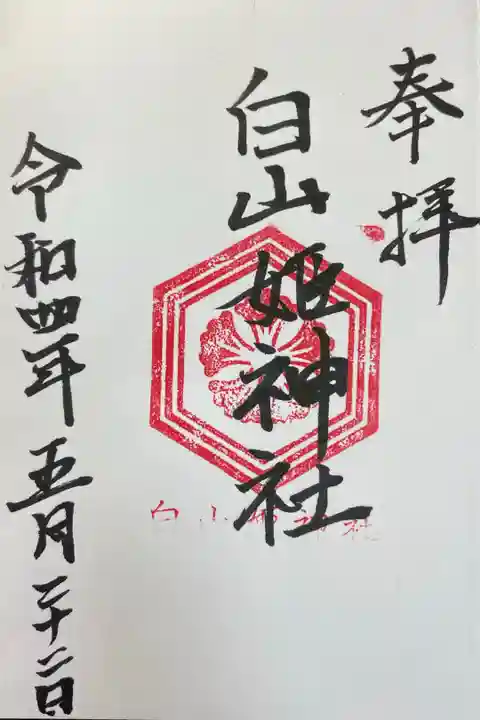 奉拝
白山姫神社
令和四年五月二十二日
白山姫神社